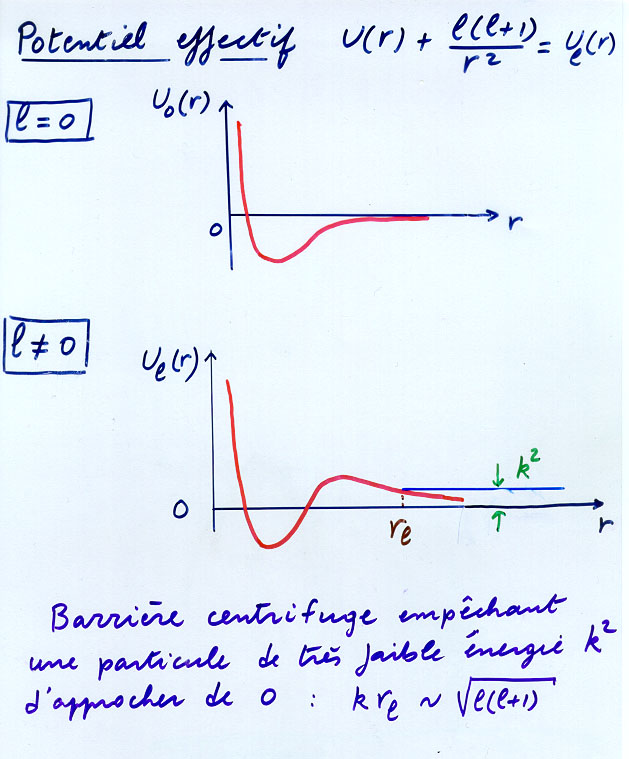 Potentiel effectif U(r) + ℓ(ℓ+1)/r² = Uℓ(r)
ℓ = 0
U₀(r)
0
r
ℓ ≠ 0
Uℓ(r)
k²
0
rℓ
r
Barrière centrifuge empêchant
une particule de très faible énergie k²
d'approcher de 0 : k rℓ ~ √ℓ(ℓ+1)